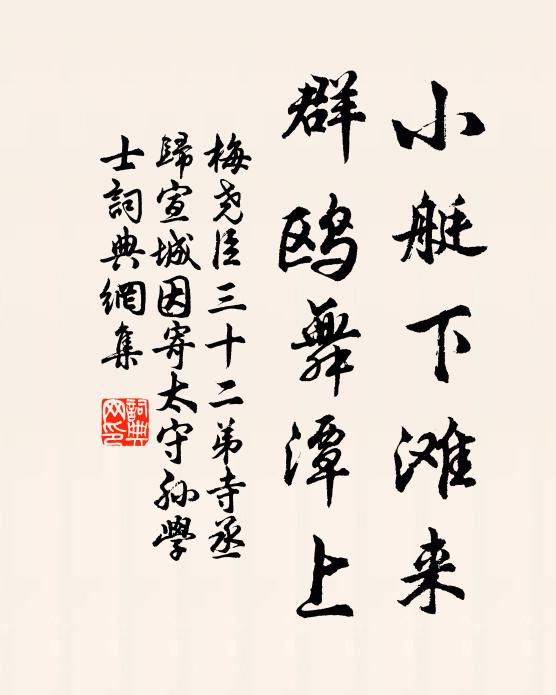 小艇下滩来
群鸥舞潭上
梅尧臣三十二弟寺丞
歸宣城因寄太守孙學
士詞典網集
詞典網印